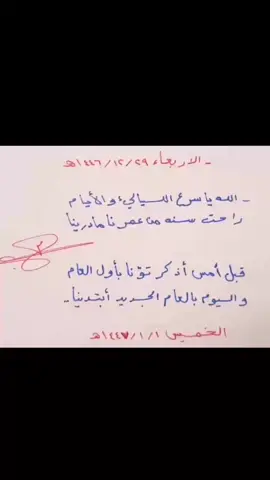 - الاربعاء ١٤٤٦/١٢/٢٩هـ
- الله يا سرع الليالي والأيام
راحت سنه من عمرنا مادرينا
قبل أمس أذكر تونا بأول العام
واليوم بالعام الجديد أبتدينا -
الخميس ١٤٤٧/١/١هـ